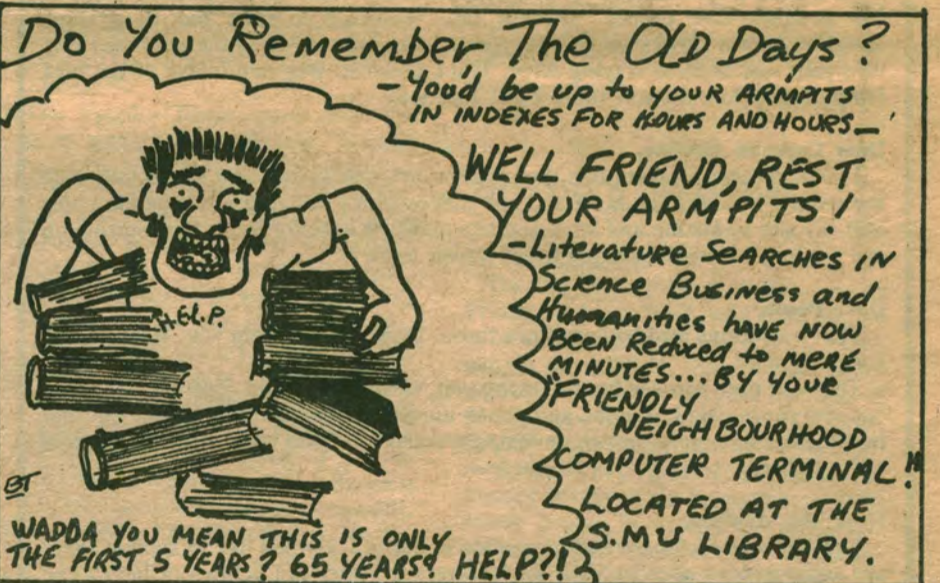 Do You Remember, The OLD Days?
- You'd be up to YOUR ARMPITS
IN INDEXES FOR HOURS AND HOURS -
WELL FRIEND, REST
YOUR ARMPITS!
- Literature SEARCHES IN
Science Business and
Humanities HAVE NOW
BEEN Reduced to MERE
MINUTES... BY YOUR
"FRIENDLY
NEIGHBOURHOOD
COMPUTER TERMINAL."
LOCATED AT THE
S.MU LIBRARY.
H.E.L.P.
BT
WADDA YOU MEAN THIS IS ONLY
THE FIRST 5 YEARS? 65 YEARS? HELP?!!